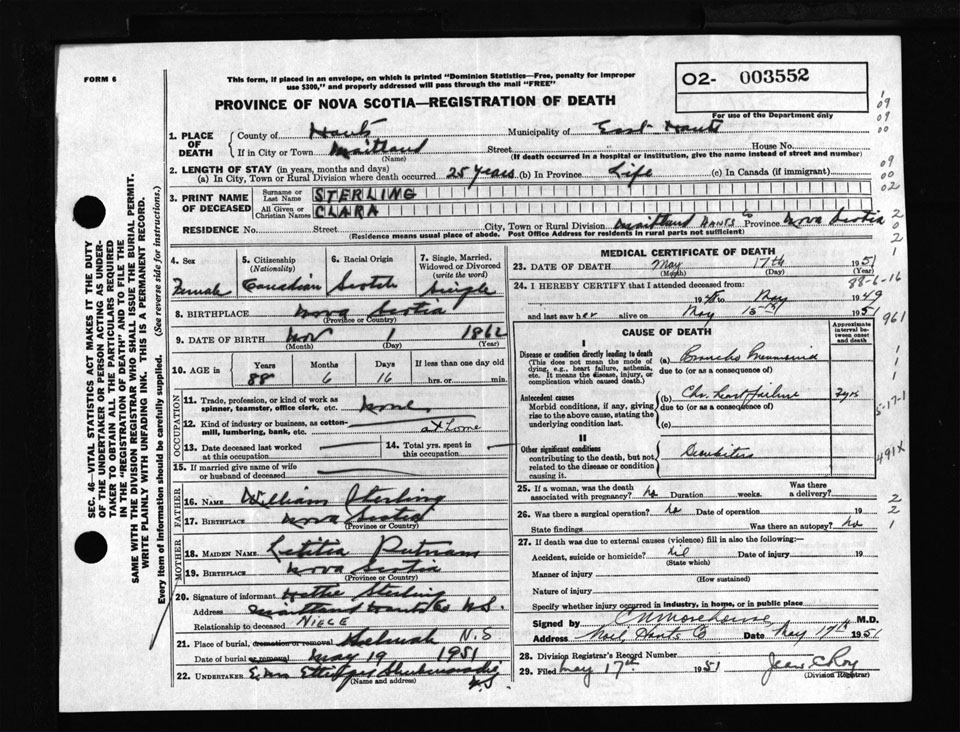 FORM 6
This form, if placed in an envelope, on which is printed "Dominion Statistics—Free, penalty for improper
use $300," and properly addressed will pass through the mail "FREE"
02- 003552
For use of the Department only
PROVINCE OF NOVA SCOTIA—REGISTRATION OF DEATH
1. PLACE OF DEATH { County of Hants Municipality of East Hants
If in City or Town Maitland Street House No.
(Name) (If death occurred in a hospital or institution, give the name instead of street and number)
2. LENGTH OF STAY (in years, months and days)
(a) In City, Town or Rural Division where death occurred 25 years (b) In Province Life (c) In Canada (if immigrant)
3. PRINT NAME OF DECEASED { Surname or Last Name STERLING
All Given or Christian Names CLARA
RESIDENCE No. Street City, Town or Rural Division Maitland HANTS Co Province Nova Scotia
(Residence means usual place of abode. Post Office Address for residents in rural parts not sufficient)
4. Sex 5. Citizenship (Nationality) 6. Racial Origin 7. Single, Married, Widowed or Divorced (write the word)
Female Canadian Scotch Single
8. BIRTHPLACE Nova Scotia
(Province or Country)
9. DATE OF BIRTH Nov 1 1862
(Month) (Day) (Year)
10. AGE in { Years Months Days If less than one day old
88 6 16 hrs. or min.
OCCUPATION
11. Trade, profession, or kind of work as
spinner, teamster, office clerk, etc. None
12. Kind of industry or business, as cotton-
mill, lumbering, bank, etc. at Home
13. Date deceased last worked
at this occupation
14. Total yrs. spent in
this occupation
15. If married give name of wife
or husband of deceased
FATHER
16. NAME William Sterling
17. BIRTHPLACE Nova Scotia
(Province or Country)
MOTHER
18. MAIDEN NAME Letitia Putnam
19. BIRTHPLACE Nova Scotia
(Province or Country)
20. Signature of informant Hattie Sterling
Address Maitland Hants Co N.S.
Relationship to deceased NIECE
21. Place of burial, cremation or removal Selmah N.S
Date of burial or removal May 19 1951
22. UNDERTAKER Shubenacadie
(Name and address) N.S.
MEDICAL CERTIFICATE OF DEATH
23. DATE OF DEATH May 17th 1951
(Month) (Day) (Year)
24. I HEREBY CERTIFY that I attended deceased from:
1945 to May 1949
and last saw her alive on May 1951
CAUSE OF DEATH
Approximate interval between onset and death
I
Disease or condition directly leading to death
(This does not mean the mode of dying, e.g., heart failure, asthenia, etc. It means the disease, injury, or complication which caused death.)
(a) Broncho Pneumonia
due to (or as a consequence of)
Antecedent causes
Morbid conditions, if any, giving rise to the above cause, stating the underlying condition last.
(b) Chr. heart failure 7 yrs
due to (or as a consequence of)
(c)
II
Other significant conditions
contributing to the death, but not related to the disease or condition causing it.
Decubitus
25. If a woman, was the death
associated with pregnancy? No Duration weeks. Was there a delivery?
26. Was there a surgical operation? No Date of operation 19
State findings Was there an autopsy? No
27. If death was due to external causes (violence) fill in also the following:—
Accident, suicide or homicide? nil Date of injury 19
(State which)
Manner of injury
(How sustained)
Nature of injury
Specify whether injury occurred in industry, in home, or in public place
Signed by C N Morehouse M.D.
Address Noel, Hants Co Date May 17th 1951
28. Division Registrar's Record Number
29. Filed May 17th 1951 Jean C Roy
(Division Registrar)
SEC. 46—VITAL STATISTICS ACT MAKES IT THE DUTY
OF THE UNDERTAKER OR PERSON ACTING AS UNDER-
TAKER TO OBTAIN ALL THE PARTICULARS REQUIRED
IN THE "REGISTRATION OF DEATH" AND TO FILE THE
SAME WITH THE DIVISION REGISTRAR WHO SHALL ISSUE THE BURIAL PERMIT.
WRITE PLAINLY WITH UNFADING INK. THIS IS A PERMANENT RECORD.
Every item of information should be carefully supplied. (See reverse side for instructions.)
1
09
09
00
09
00
02
2
0
2
1
88-6-16
961
1
1
1
5-17-1
491X
2
2
1